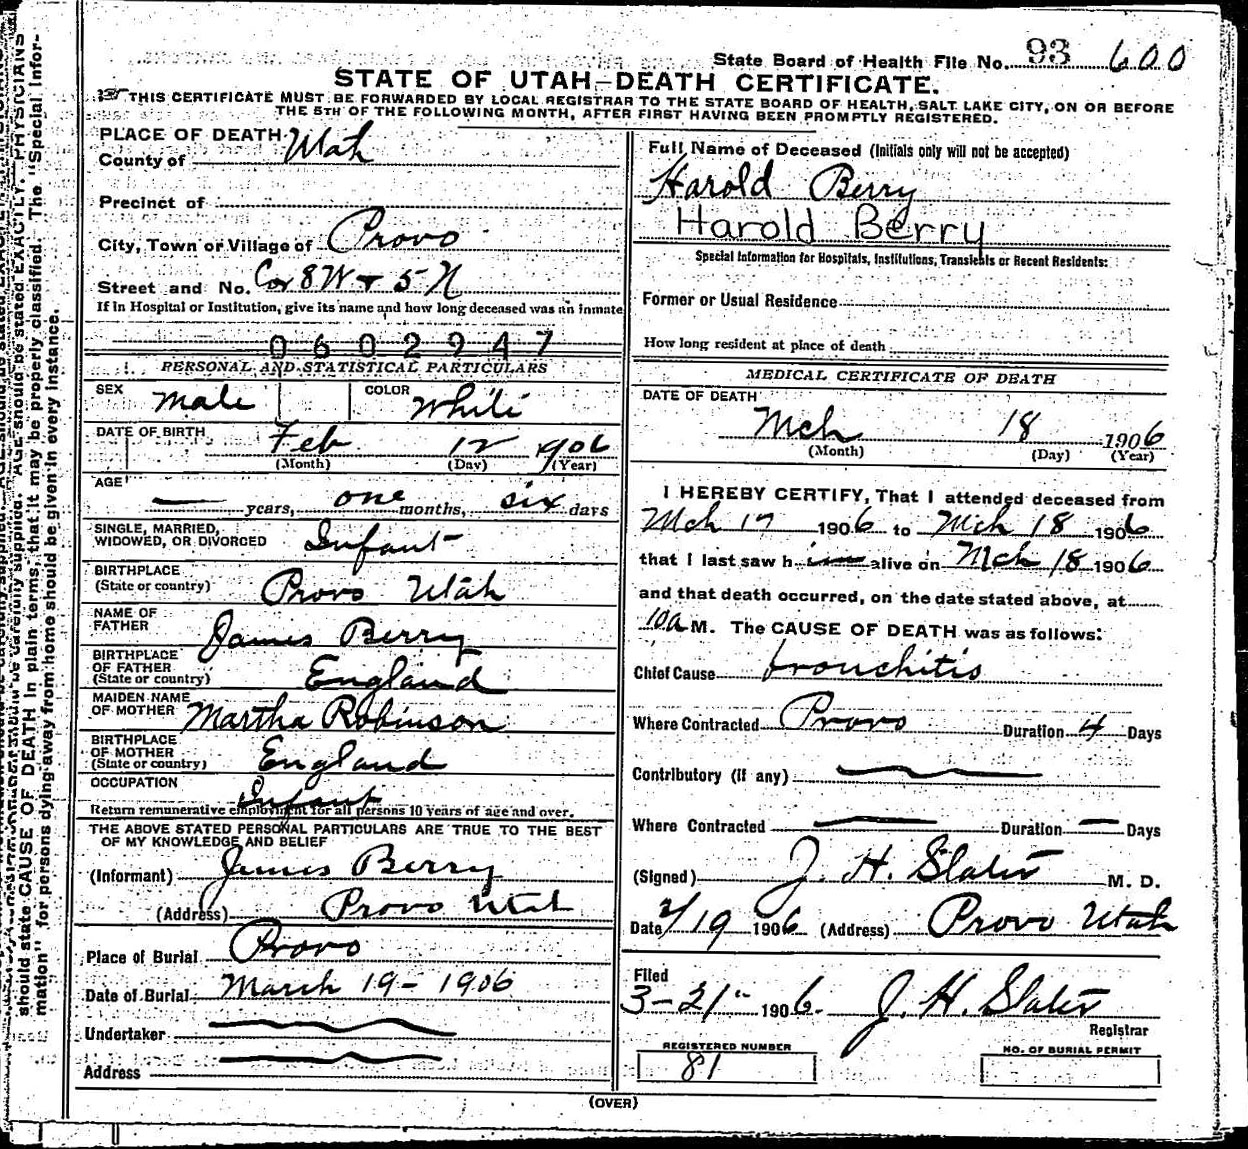 State Board of Health File No. 93 600
STATE OF UTAH—DEATH CERTIFICATE.
THIS CERTIFICATE MUST BE FORWARDED BY LOCAL REGISTRAR TO THE STATE BOARD OF HEALTH, SALT LAKE CITY, ON OR BEFORE
THE 5TH OF THE FOLLOWING MONTH, AFTER FIRST HAVING BEEN PROMPTLY REGISTERED.
PLACE OF DEATH
County of Utah
Precinct of
City, Town or Village of Provo
Street and No. Cor 8W + 5 N
If in Hospital or Institution, give its name and how long deceased was an inmate
0602947
PERSONAL AND STATISTICAL PARTICULARS
SEX Male COLOR White
DATE OF BIRTH Feb 12 1906
(Month) (Day) (Year)
AGE — years, one months, six days
SINGLE, MARRIED,
WIDOWED, OR DIVORCED Infant
BIRTHPLACE
(State or country) Provo Utah
NAME OF
FATHER James Berry
BIRTHPLACE
OF FATHER
(State or country) England
MAIDEN NAME
OF MOTHER Martha Robinson
BIRTHPLACE
OF MOTHER
(State or country) England
OCCUPATION
Infant
Return remunerative employment for all persons 10 years of age and over.
THE ABOVE STATED PERSONAL PARTICULARS ARE TRUE TO THE BEST
OF MY KNOWLEDGE AND BELIEF
(Informant) James Berry
(Address) Provo Utah
Place of Burial Provo
Date of Burial March 19 - 1906
Undertaker
Address
Full Name of Deceased (Initials only will not be accepted)
Harold Berry
Harold Berry
Special Information for Hospitals, Institutions, Transients or Recent Residents:
Former or Usual Residence
How long resident at place of death
MEDICAL CERTIFICATE OF DEATH
DATE OF DEATH
Mch 18 1906
(Month) (Day) (Year)
I HEREBY CERTIFY, That I attended deceased from
Mch 17 1906 to Mch 18 1906
that I last saw h im alive on Mch 18 1906
and that death occurred, on the date stated above, at
10a M. The CAUSE OF DEATH was as follows:
Chief Cause bronchitis
Where Contracted Provo Duration 4 Days
Contributory (if any)
Where Contracted — Duration — Days
(Signed) J. H. Slater M. D.
Date /19 1906 (Address) Provo Utah
Filed
3-21" 1906. J. H. Slater
Registrar
REGISTERED NUMBER NO. OF BURIAL PERMIT
81
(OVER)
should state CAUSE OF DEATH in plain terms, that it may be properly classified. The "Special Infor-
mation" for persons dying away from home should be given in every instance.